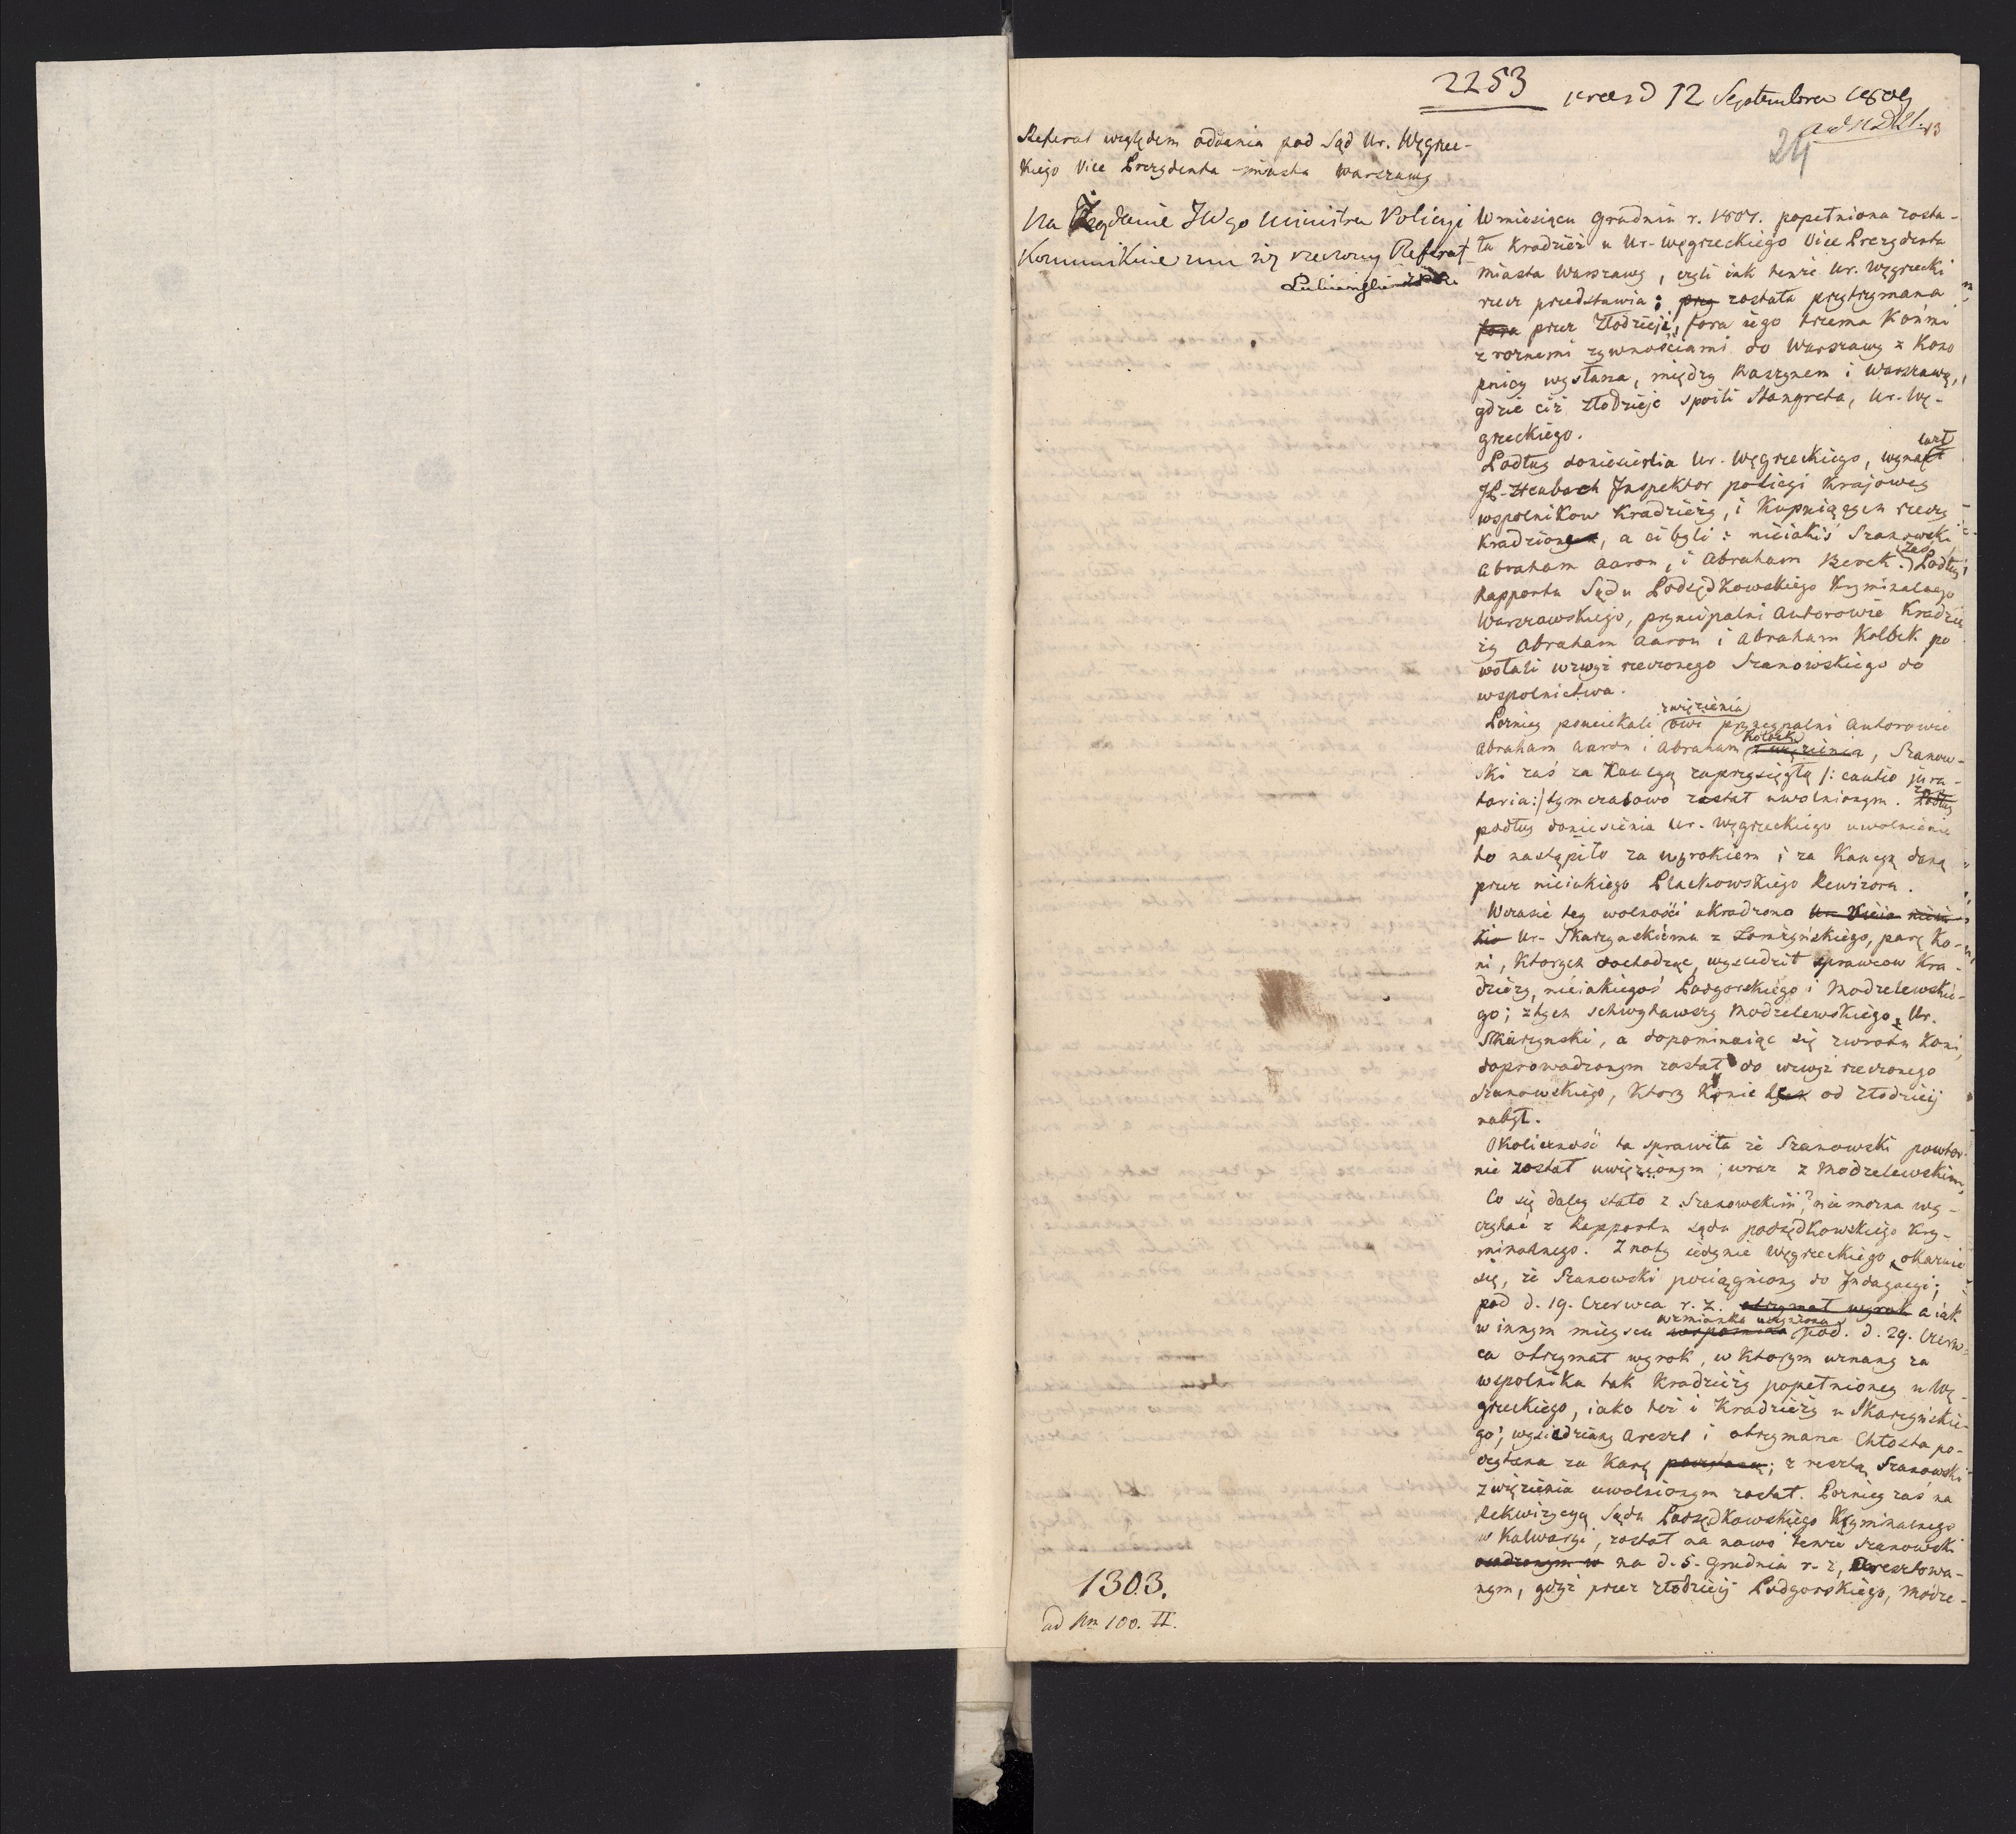 2253
praes d 12 Septembra 1809
ad N 221.
13
24
Referat względem oddania pod Sąd Ur. Węgrzec-
kiego Vice Prezydenta miasta Warszawy
Na Żądanie JWgo Ministra Policyi
Kommunikuie mu się rzeczony Referat
W miesiącu Grudniu r. 1807. popełniona zosta-
ła Kradzież u Ur. Węgrzeckiego Vice Prezydenta
miasta Warszawy, czyli iak tenże Ur. Węgrzecki
rzecz przedstawia; przy została przytrzymana
fora przez Złodzieji, fora iego trzema Końmi
z roznemi zywnościami do Warszawy z Kono
pnicy wysłana, między Raszynem i Warszawą,
gdzie ciż złodzieje spoili Stangreta, Ur. Wę-
grzeckiego.
Podług doniesienia Ur. Węgrzeckiego, wynalazł
JP. Inspektor policyi Krajowey
wspolnikow Kradzieży, i Kupuiących rzeczy
Kradzione, a ci byli: nieiakiś Szanowski
Abraham Aaron, i Abraham Berek. Podług zaś
Rapportu Sądu Podsędkowskiego Kryminalnego
Warszawskiego, pryncipalni Autorowie Kradzie
ży Abraham Aaron i Abraham Kolbek po
wołali wzwyż rzeczonego Szanowskiego do
wspolnictwa.
Pozniey pouciekali z więzienia owi pryncypalni Autorowie
Abraham Aaron i Abraham Kolbek z więzienia, Szanow-
ski zaś za Kaucyą zaprzysięgłą /: cautio jura-
toria:/ tymczasowo został uwolnionym. Podług zaś
podług doniesienia Ur. Węgrzeckiego uwolnienie
to nastąpiło za wyrokiem i za Kaucyą daną
przez nieiakiego Plackowskiego Rewizora.
W czasie tey wolności ukradzono
Ur. Skarzynskiemu z Łomżyńskiego, parę Ko-
ni, Ktorych dochodząc, wysledził sprawcow Kra-
dzieży, nieiakiegoś Podgorskiego i Modzelewskie-
go; z tych schwytawszy Modzelewskiego, Ur.
Skarzynski, a dopominaiąc się zwrotu Koni,
doprowadzonym został do wzwyż rzeczonego
Szanowskiego, Ktory Konie tych od Złodzieij
nabył.
Okoliczność ta sprawiła że Szanowski powtor-
nie został uwięzionym; wraz z Modzelewskim,
Co się daley stało z Szanowskim? nie mozna wy-
czytać z Rapportu sądu podsędkowskiego Kry-
minalnego. Z noty iedynie Węgrzeckiego okazuie
się, że Szanowski pociągniony do Indagacyi;
pod d. 19. Czerwca r. z. otrzymał wyrok a iak
w innym mieyscu wzmianka uczyniona pod. d. 29. Czerw-
ca otrzymał wyrok, w Ktorym uznany za
wspolnika tak Kradzieży popełnioney u Wę-
grzeckiego, iako też i Kradzieży u Skarzyńskie-
go; wysiedziany Areszt i otrzymana Chłosta po-
czytana za Karę; z resztą Szanowski
z więzienia uwolnionym został. Pozniey zaś na
Rekwizycyą Sądu Podsędkowskiego Kryminalnego
w Kalwaryi, został na nowo tenże Szanowski
osadzonym w na d. 5. Grudnia r. z, Aresztowa-
nym, gdyż przez złodzieij Podgorskiego, Modze-
1303.
ad Nm 100. II.